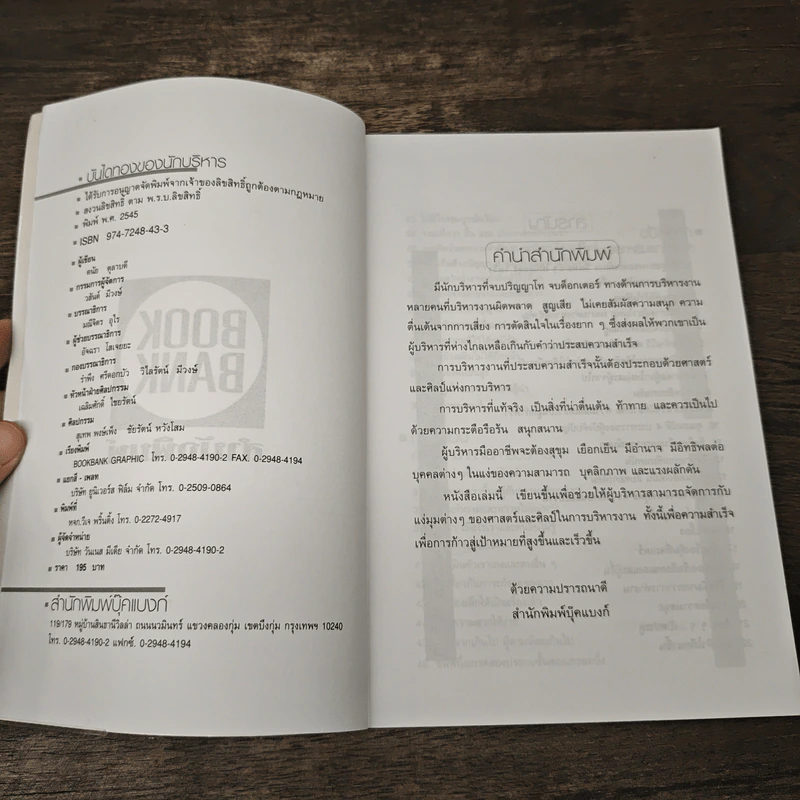 บันไดทองของนักบริหาร
ได้รับการอนุญาตจัดพิมพ์จากเจ้าของลิขสิทธิ์ถูกต้องตามกฎหมาย
สงวนลิขสิทธิ์ ตาม พ.ร.บ.ลิขสิทธิ์
พิมพ์ พ.ศ. 2545
ISBN 974-7248-43-3
ผู้เขียน
ดนัย ตุลาบดี
กรรมการผู้จัดการ
วสันต์ มีวงษ์
บรรณาธิการ
มณีจิตร อุไร
ผู้ช่วยบรรณาธิการ
อัจฉรา โสเจยยะ
กองบรรณาธิการ
รำพึง ศรีดอกบัว วิไลรัตน์ มีวงษ์
หัวหน้าฝ่ายศิลปกรรม
เฉลิมศักดิ์ ไชยรัตน์
ศิลปกรรม
สุเทพ พงษ์เพ็ง ชัยรัตน์ หวังโสม
เรียงพิมพ์
BOOKBANK GRAPHIC โทร. 0-2948-4190-2 FAX. 0-2948-4194
แยกสี - เพลท
บริษัท ยูนิเวอร์ส ฟิล์ม จำกัด โทร. 0-2509-0864
พิมพ์ที่
หจก.วีเจ พริ้นติ้ง โทร. 0-2272-4917
ผู้จัดจำหน่าย
บริษัท วันเนส มีเดีย จำกัด โทร. 0-2948-4190-2
ราคา 195 บาท
สำนักพิมพ์บุ๊คแบงก์
119/179 หมู่บ้านสินธานีวิลล่า ถนนนวมินทร์ แขวงคลองกุ่ม เขตบึงกุ่ม กรุงเทพฯ 10240
โทร. 0-2948-4190-2 แฟกซ์. 0-2948-4194
คำนำสำนักพิมพ์
มีนักบริหารที่จบปริญญาโท จบด็อกเตอร์ ทางด้านการบริหารงาน
หลายคนที่บริหารงานผิดพลาด สูญเสีย ไม่เคยสัมผัสความสนุก ความ
ตื่นเต้นจากการเสี่ยง การตัดสินใจในเรื่องยาก ๆ ซึ่งส่งผลให้พวกเขาเป็น
ผู้บริหารที่ห่างไกลเหลือเกินกับคำว่าประสบความสำเร็จ
การบริหารงานที่ประสบความสำเร็จนั้นต้องประกอบด้วยศาสตร์
และศิลป์แห่งการบริหาร
การบริหารที่แท้จริง เป็นสิ่งที่น่าตื่นเต้น ท้าทาย และควรเป็นไป
ด้วยความกระตือรือร้น สนุกสนาน
ผู้บริหารมืออาชีพจะต้องสุขุม เยือกเย็น มีอำนาจ มีอิทธิพลต่อ
บุคคลต่างๆ ในแง่ของความสามารถ บุคลิกภาพ และแรงผลักดัน
หนังสือเล่มนี้ เขียนขึ้นเพื่อช่วยให้ผู้บริหารสามารถจัดการกับ
แง่มุมต่างๆ ของศาสตร์และศิลป์ในการบริหารงาน ทั้งนี้เพื่อความสำเร็จ
เพื่อการก้าวสู่เป้าหมายที่สูงขึ้นและเร็วขึ้น
ด้วยความปรารถนาดี
สำนักพิมพ์บุ๊คแบงก์